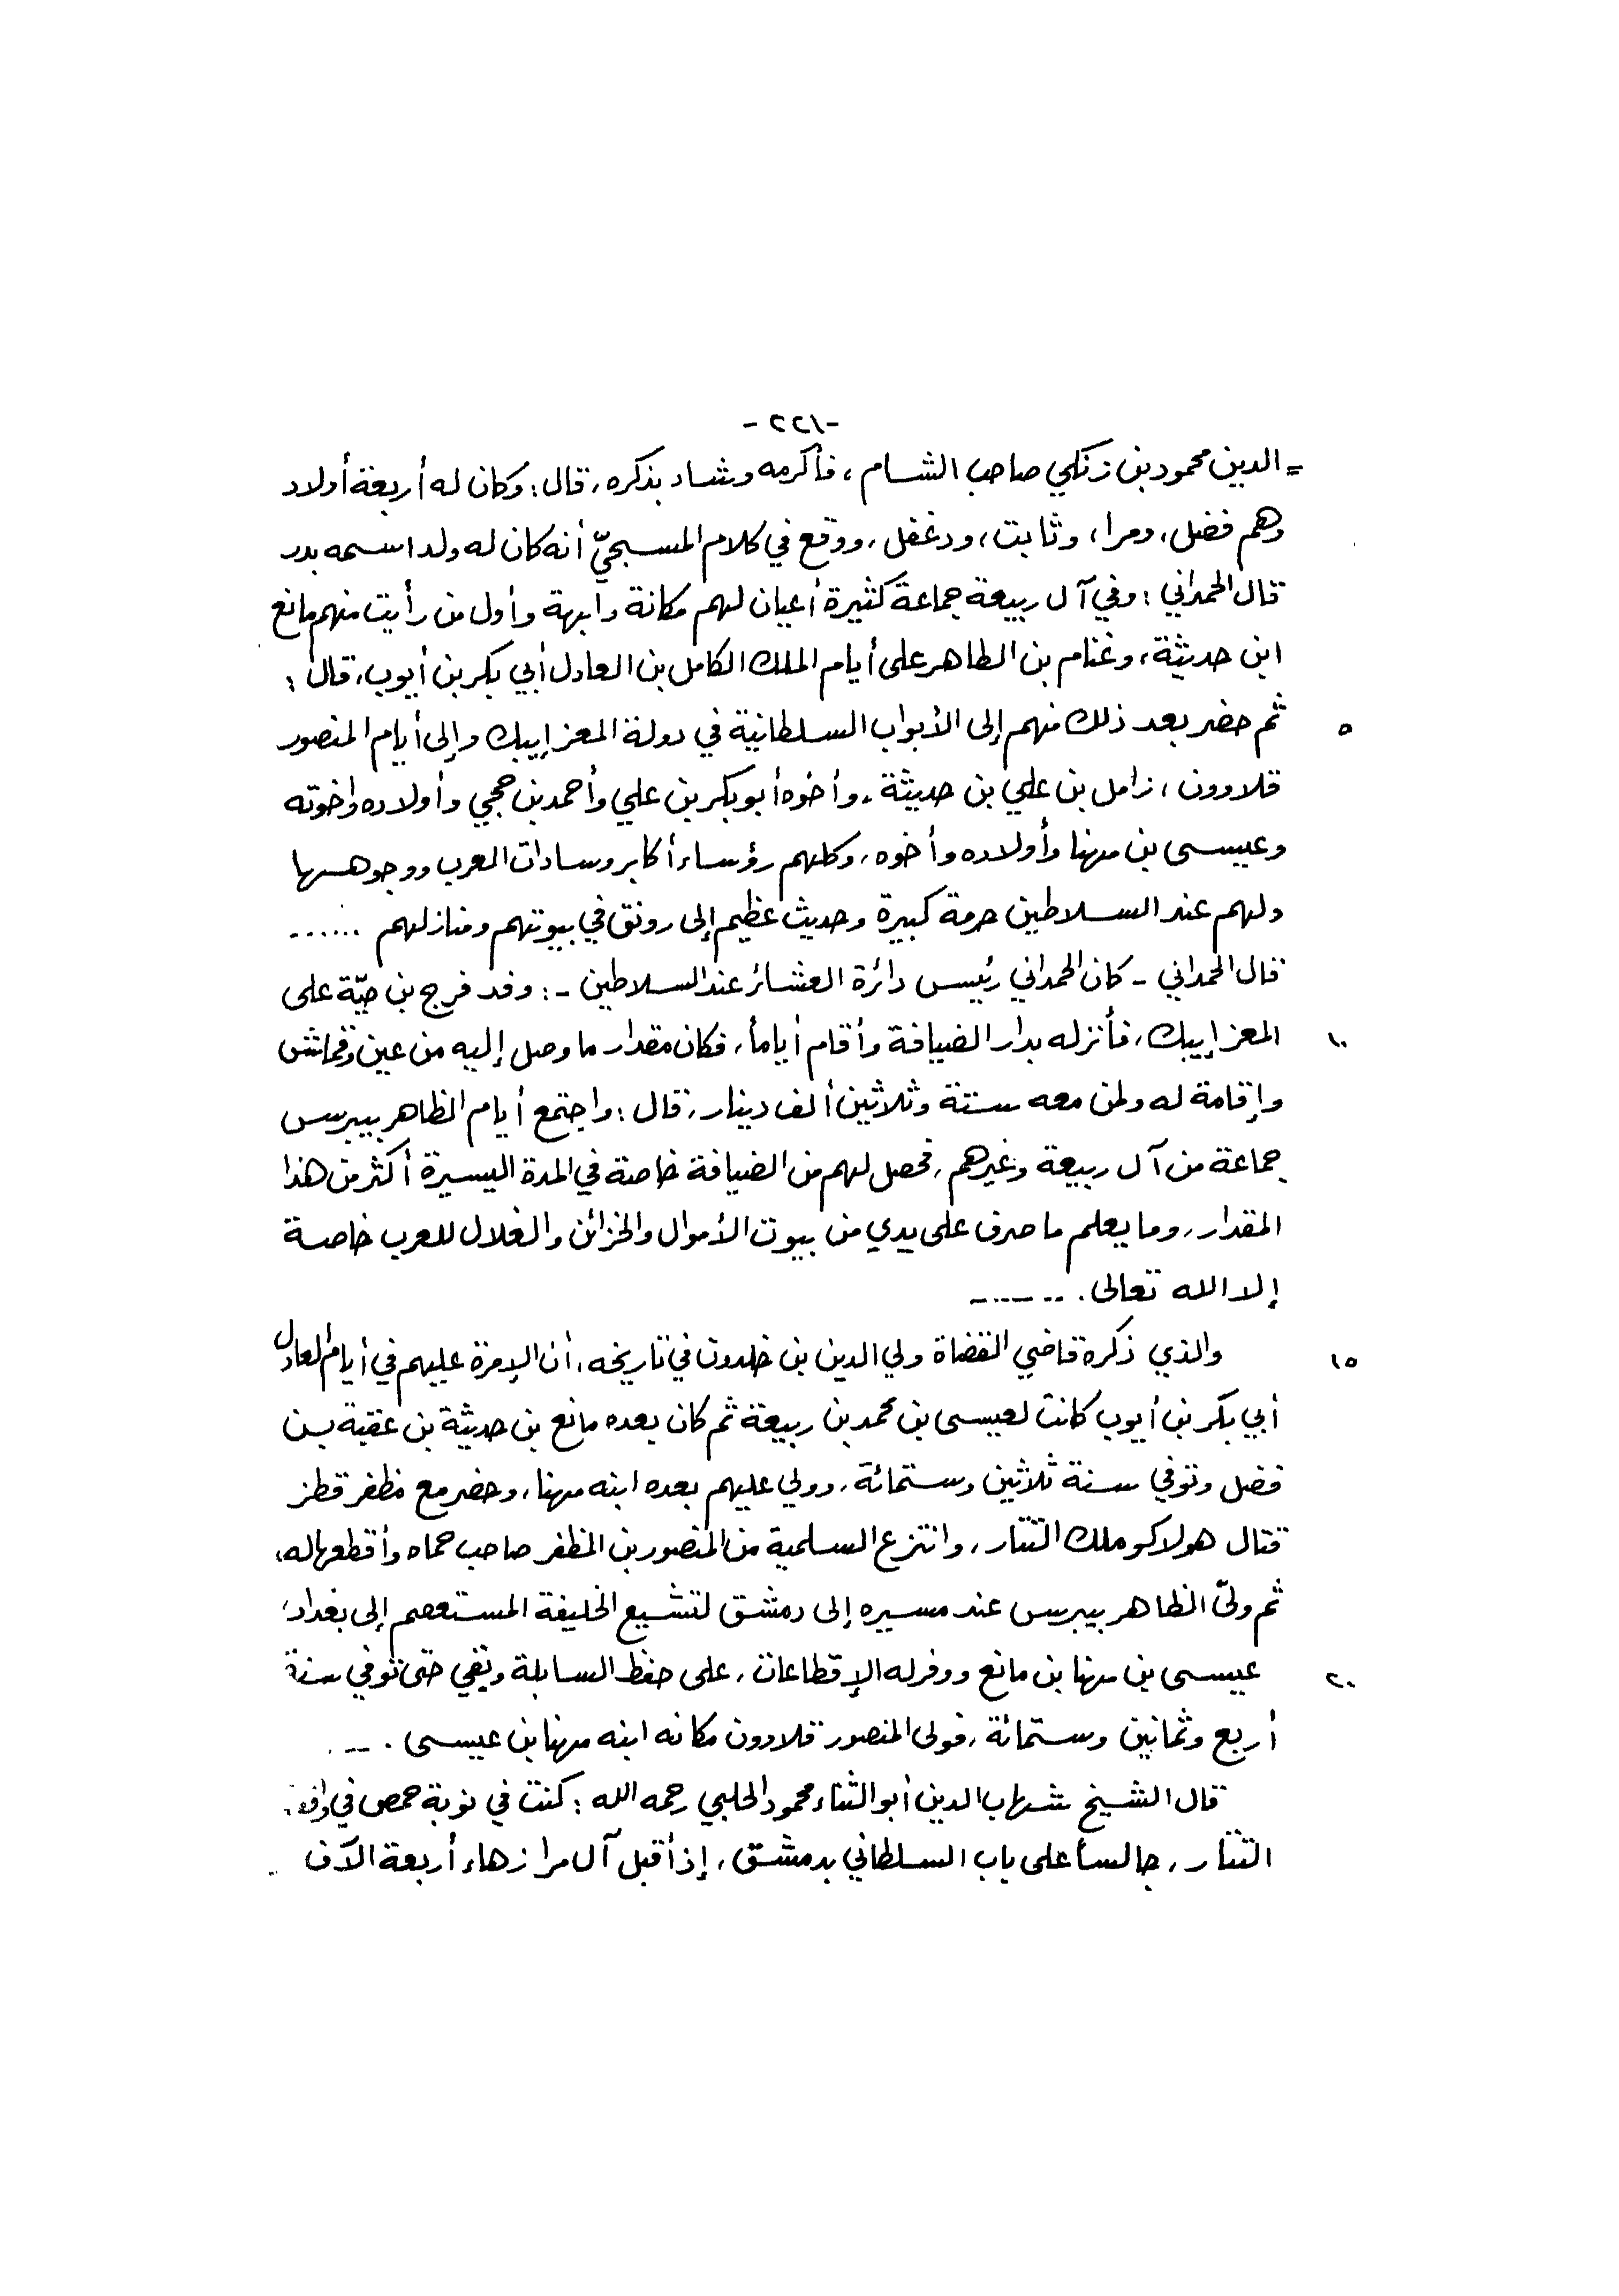 -٢٢١-
= الدين محمود بن زنكي صاحب الشام، فأكرمه وشاد بذكره، قال: وكان له أربعة أولاد
وهم فضل، ومرا، وثابت، ودغفل، ووقع في كلام المسبحيّ أنه كان له ولد اسمه بدر
قال الحمداني: وفي آل ربيعة جماعة كثيرة أعيان لهم مكانة وابهة وأول من رأيت منهم مانع
ابن حديثة، وغنام بن الطاهر على أيام الملك الكامل بن العادل أبي بكر بن أيوب، قال:
٥ ثم حضر بعد ذلك منهم إلى الأبواب السلطانية في دولة المعز إيبك وإلى أيام المنصور
قلاوون، زامل بن علي بن حديثة، وأخوه أبو بكر بن علي وأحمد بن حجي وأولاده وإخوته
وعيسى بن مهنا وأولاده وأخوه، وكلهم رؤساء أكابر وسادات العرب ووجوهها
ولهم عند السلاطين حرمة كبيرة وحديث عظيم إلى رونق في بيوتهم ومنازلهم ......
قال الحمداني - كان الحمداني رئيس دائرة العشائر عند السلاطين -: وفد فرج بن حيّة على
١٠ المعز إيبك، فأنزله بدار الضيافة وأقام أياماً، فكان مقدار ما وصل إليه من عين وقماش
وإقامة له ولمن معه ستة وثلاثين ألف دينار، قال: واجتمع أيام الظاهر بيبرس
جماعة من آل ربيعة وغيرهم، فحصل لهم من الضيافة خاصة في المدة اليسيرة أكثر من هذا
المقدار، وما يعلم ما صرف على يدي من بيوت الأموال والخزائن والغلال للعرب خاصة
إلا الله تعالى. ......
١٥ والذي ذكرة قاضي القضاة ولي الدين بن خلدون في تاريخه، أن الإمرة عليهم في أيام العادل
أبي بكر بن أيوب كانت لعيسى بن محمد بن ربيعة ثم كان بعده مانع بن حديثة بن عقبة بن
فضل وتوفي سنة ثلاثين وستمائة، وولي عليهم بعده ابنه مهنا، وحضر مع مظفر قطز
قتال هولاكو ملك التتار، وانتزع السلمية من المنصور بن المظفر صاحب حماه وأقطعها له،
ثم ولّى الظاهر بيبرس عند مسيره إلى دمشق لتشييع الخليفة المستعصم إلى بغداد،
٢٠ عيسى بن مهنا بن مانع ووفر له الإقطاعات، على حفظ السابلة وبقي حتى توفي سنة
أربع وثمانين وستمائة، فولى المنصور قلاوون مكانه ابنه مهنا بن عيسى. ...
قال الشيخ شهاب الدين أبو الثناء محمود الحلبي رحمه الله: كنت في نوبة حمص في
التتار، جالساً على باب السلطاني بدمشق، إذ أقبل آل مرا زهاء أربعة الآف